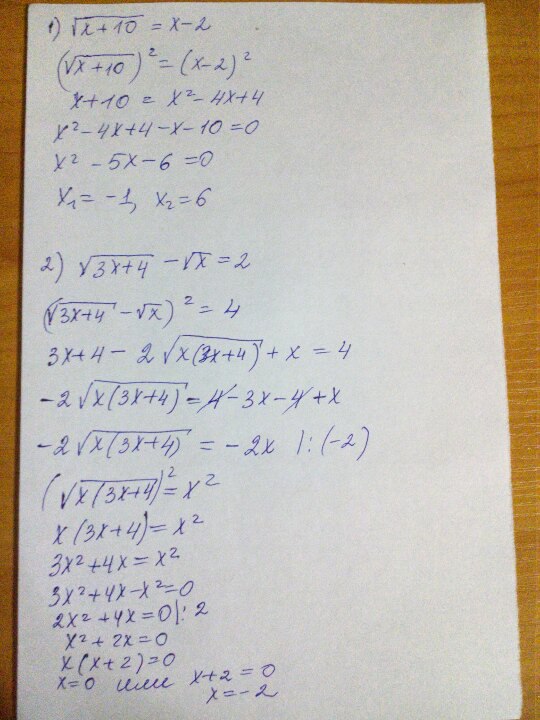 1) √(x+10) = x-2
(√(x+10))² = (x-2)²
x+10 = x²-4x+4
x²-4x+4-x-10=0
x²-5x-6=0
x₁=-1, x₂=6
2) √(3x+4) -√x=2
(√(3x+4) -√x)² = 4
3x+4- 2√(x(3x+4)) + x = 4
-2√(x(3x+4)) = 4-3x-4+x
-2√(x(3x+4)) = -2x |:(-2)
(√(x(3x+4))² = x²
x(3x+4)= x²
3x²+4x= x²
3x²+4x-x²=0
2x²+4x=0|:2
x²+2x=0
x(x+2)=0
x=0 или x+2=0
x=-2